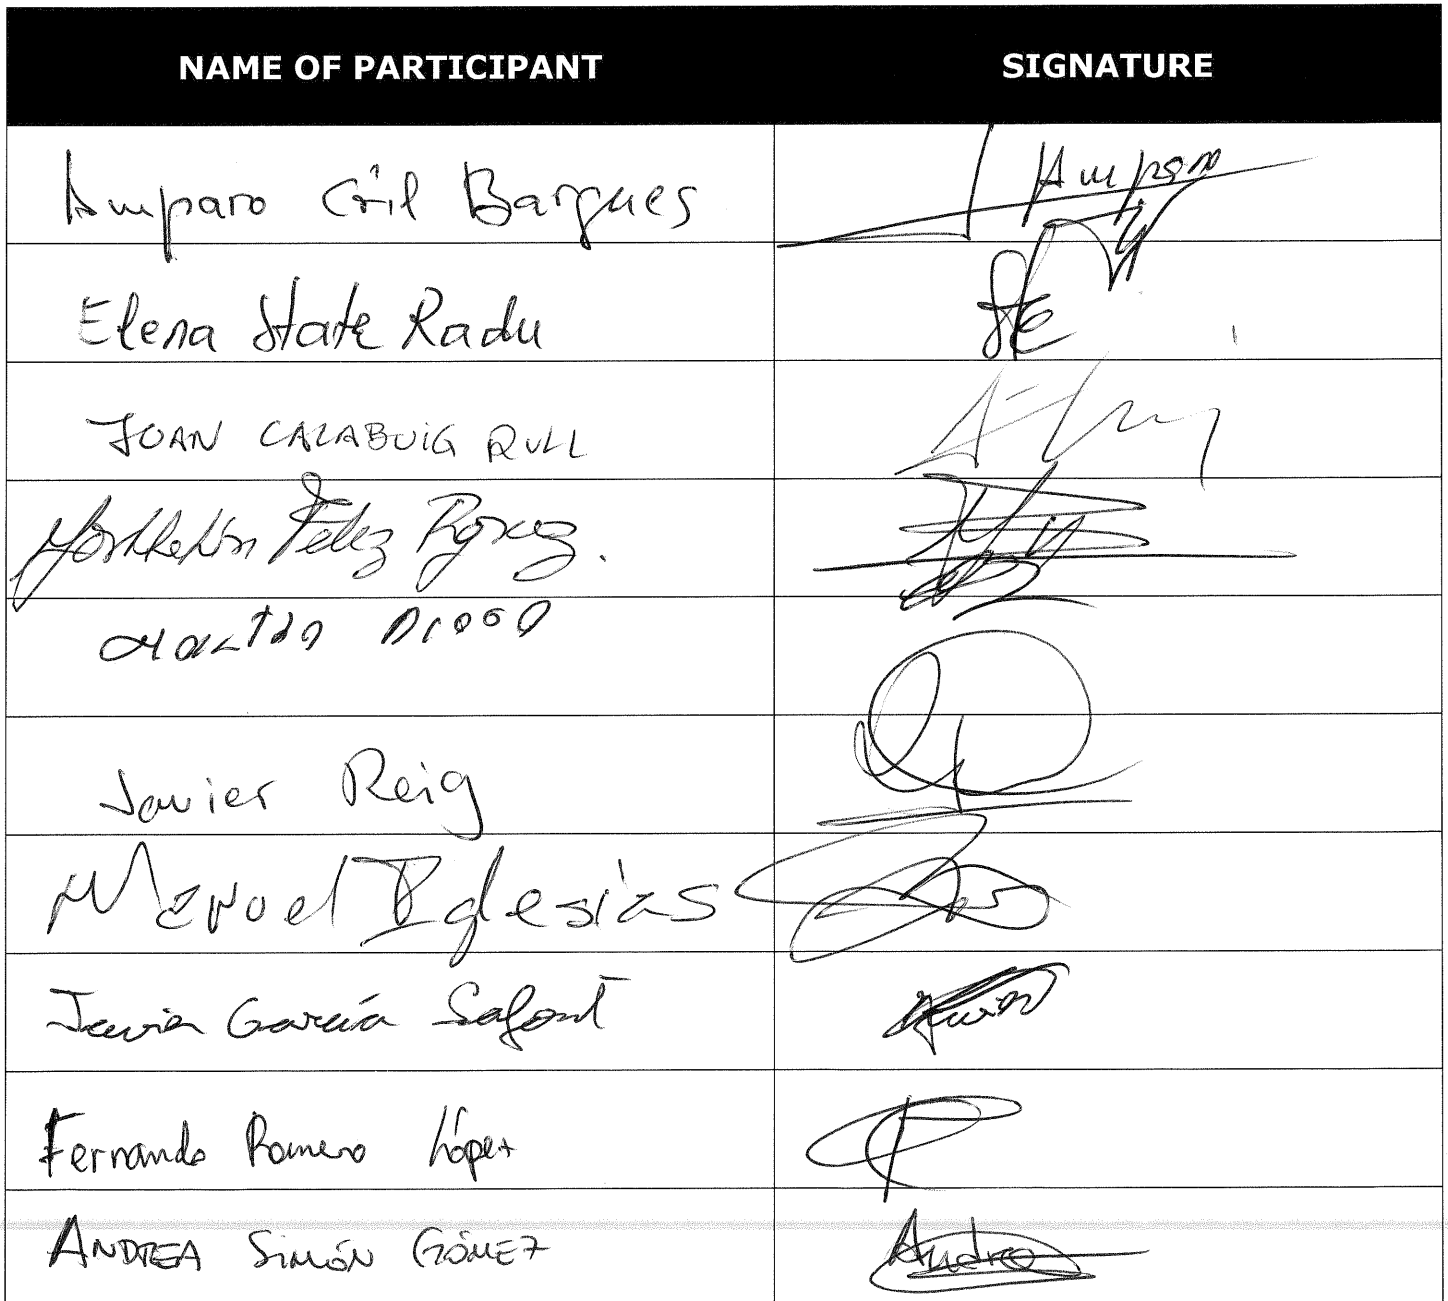 NAME OF PARTICIPANT SIGNATURE
Amparo Gil Bargues Amparo
Elena State Radu
JOAN CALABUIG RULL
Félez
Javier Reig
Manuel Iglesias
Javier García Safont Javier
Fernando Romero López
ANDREA SIMÓN GÓMEZ Andrea